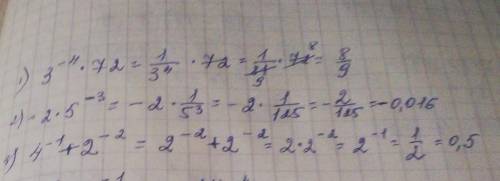 1) 3⁻⁴ · 72 = 1/3⁴ · 72 = 1/81 9 · 72 8 = 8/9
2) -2 · 5⁻³ = -2 · 1/5³ = -2 · 1/125 = -2/125 = -0,016
4) 4⁻¹ + 2⁻² = 2⁻² + 2⁻² = 2 · 2⁻² = 2⁻¹ = 1/2 = 0,5